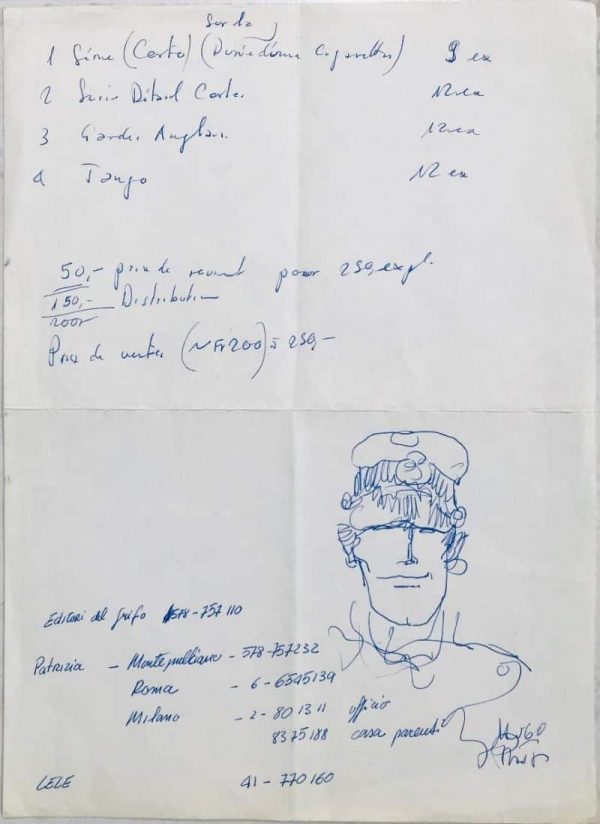 Sur la
1 Série (Corto) ( Cigarettes) 9 ex
2 Série Corto 12 ex
3 12 ex
4 Tango 12 ex
50,- prix de revient pour 250 expl.
150,- Distribution
200,-
Prix de vente ( 200) à 250,-
Editori del Grifo 578-757110
Patrizia - Montepulciano - 578-757232
Roma - 6-6545139
Milano - 2-801311 ufficio
8375188 casa parenti
LELE 41-770160
Hugo
Pratt